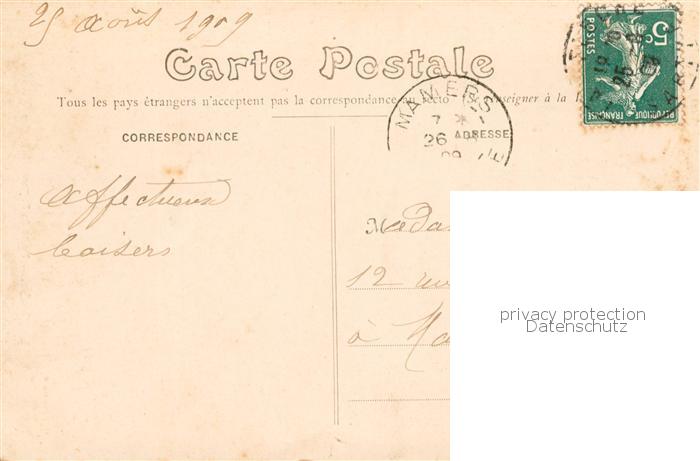 25 Août 1909
Carte Postale
Tous les pays étrangers n'acceptent pas la correspondance au recto se renseigner à la
CORRESPONDANCE
ADRESSE
MAMERS
7
26
09
5c
POSTES
REPUBLIQUE FRANÇAISE
Affectueux
baisers
12
à
privacy protection
Datenschutz